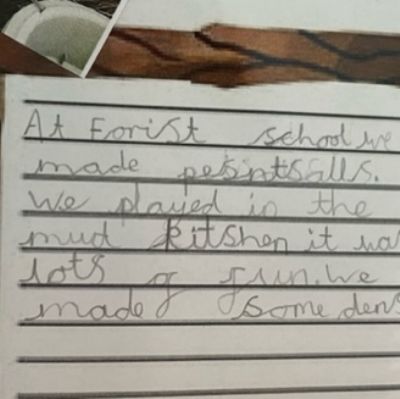 At Forist school we
made
We played in the
mud kitshen it wa
lots of fun. We
made some dens